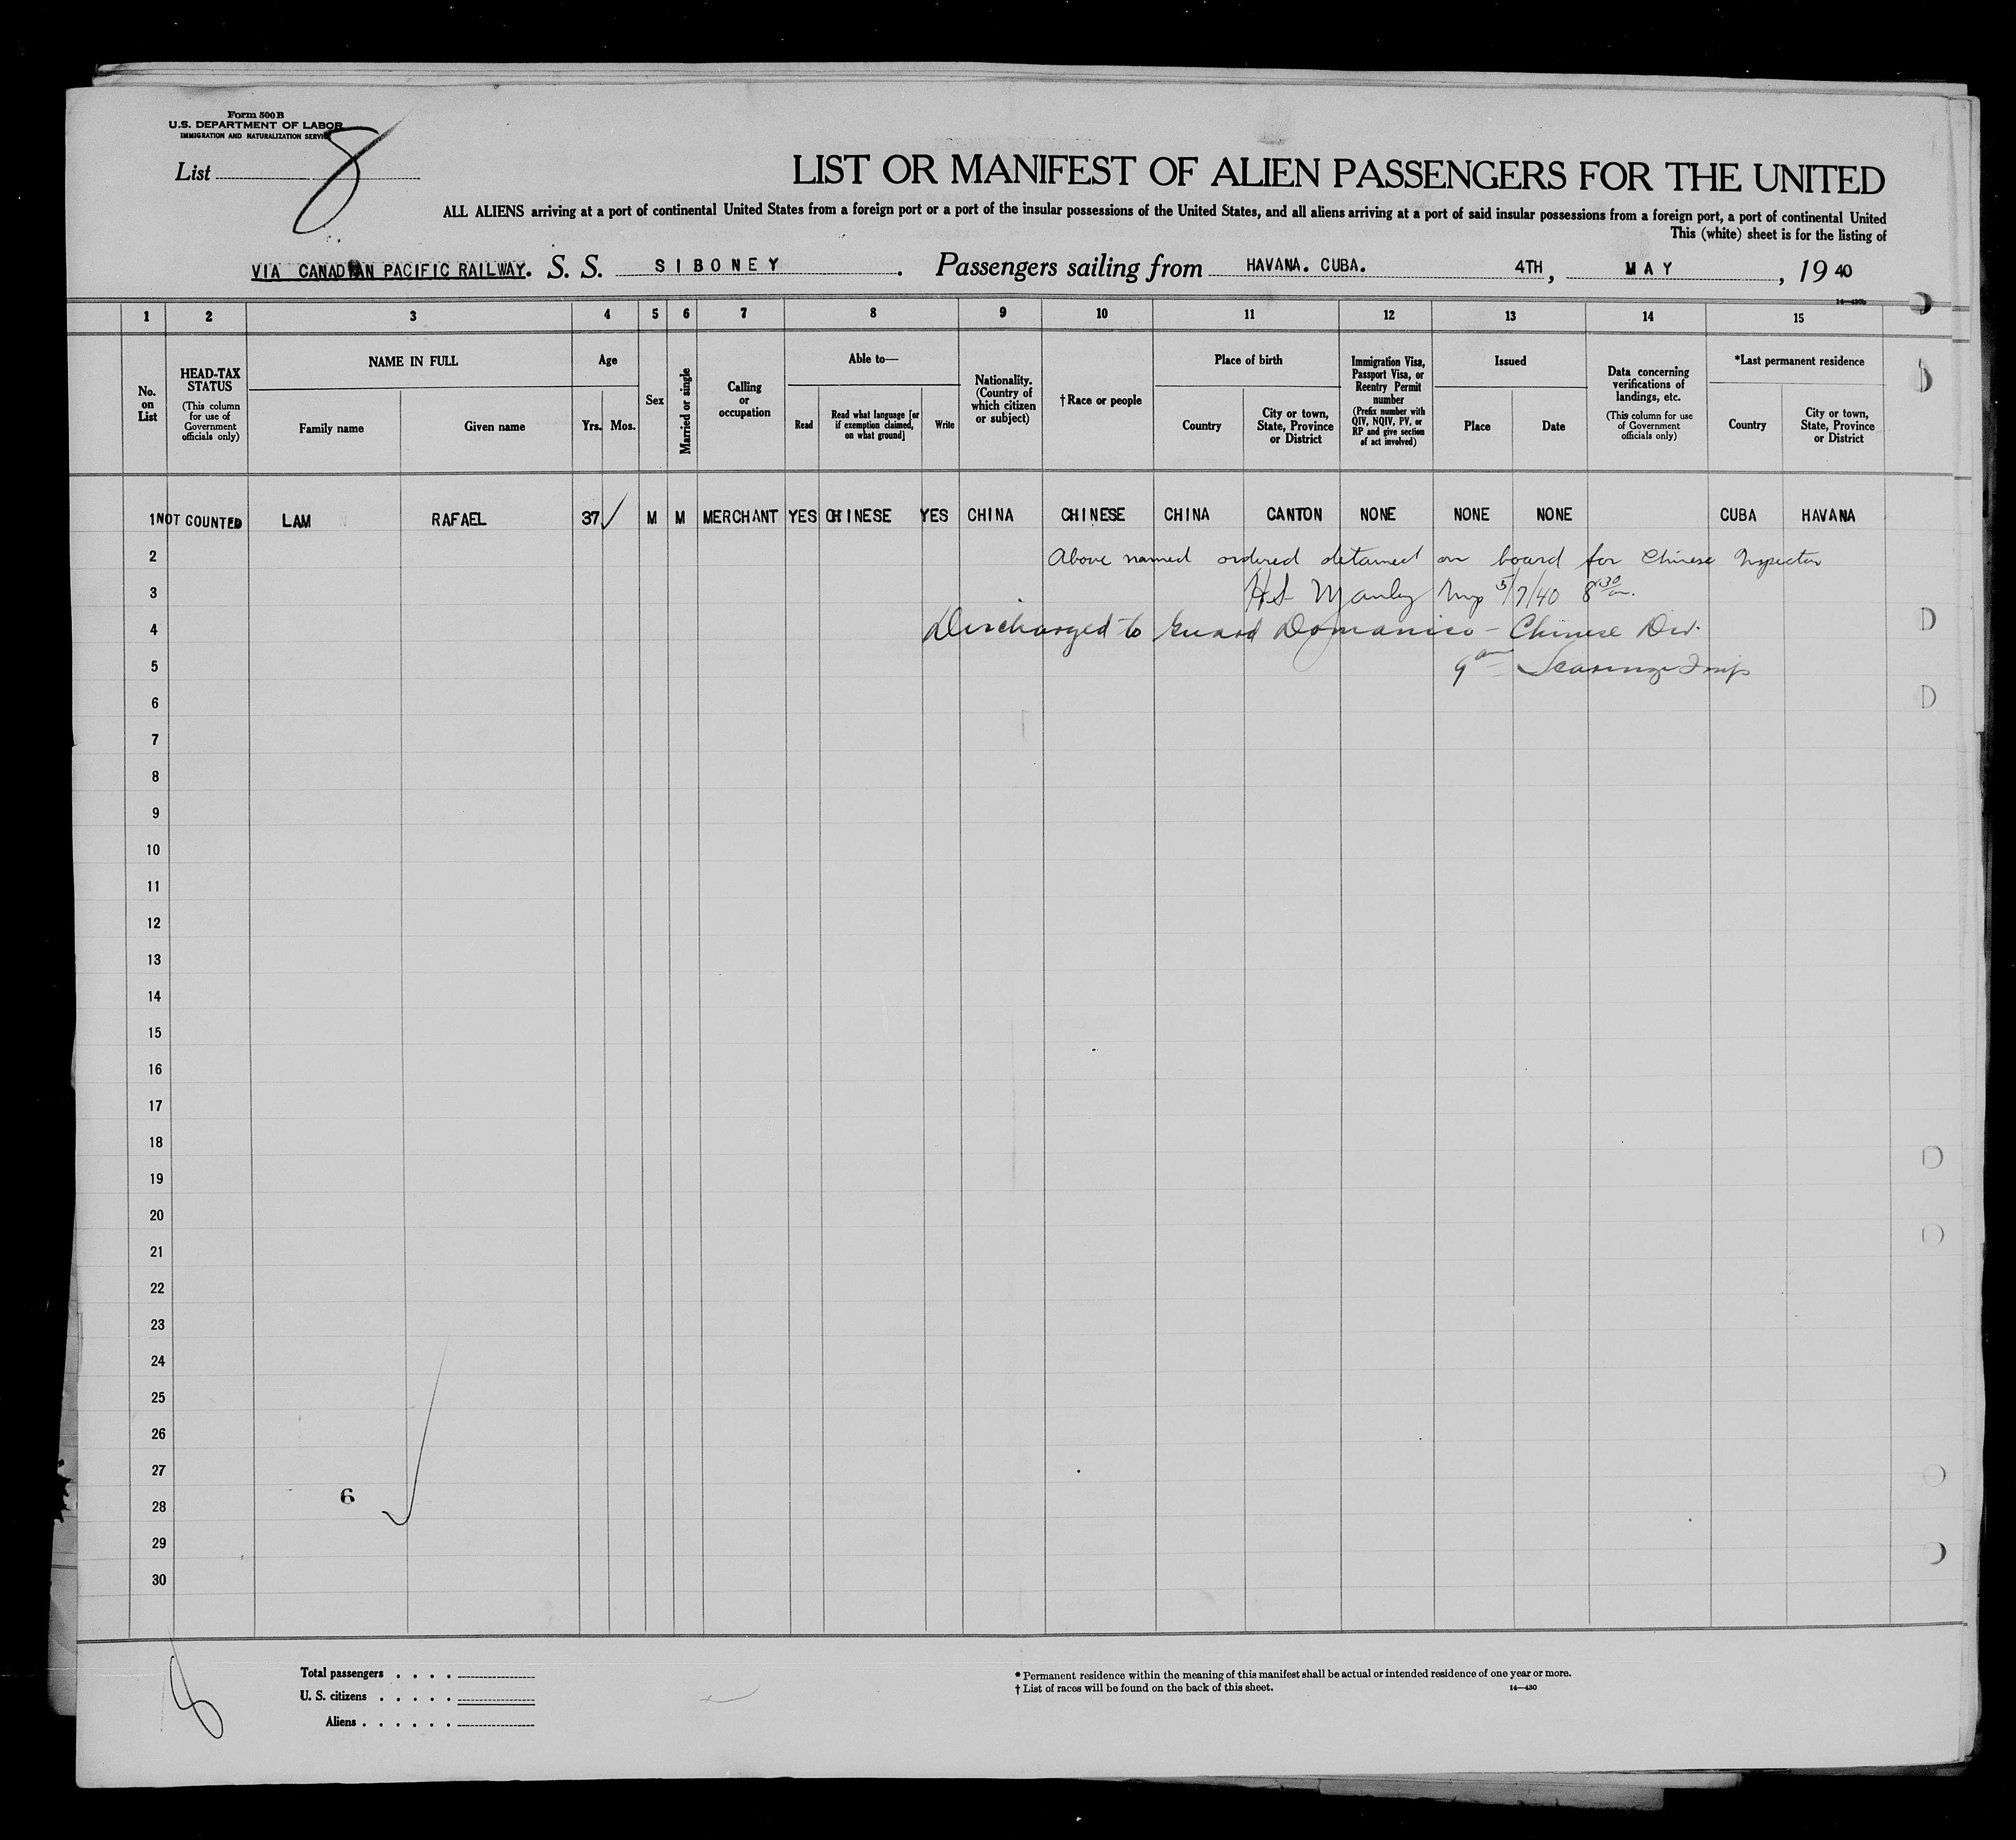 Form 500B
U.S. DEPARTMENT OF LABOR
IMMIGRATION AND NATURALIZATION SERVICE
List 8
LIST OR MANIFEST OF ALIEN PASSENGERS FOR THE UNITED
ALL ALIENS arriving at a port of continental United States from a foreign port or a port of the insular possessions of the United States, and all aliens arriving at a port of said insular possessions from a foreign port, a port of continental United
This (white) sheet is for the listing of
VIA CANADIAN PACIFIC RAILWAY. S. S. SIBONEY. Passengers sailing from HAVANA. CUBA. 4TH, MAY, 19 40
14—430b
1 2 3 4 5 6 7 8 9 10 11 12 13 14 15
No. on List
HEAD-TAX STATUS
(This column for use of Government officials only)
NAME IN FULL
Family name
Given name
Age
Yrs. Mos.
Sex
Married or single
Calling or occupation
Able to—
Read
Read what language [or if exemption claimed, on what ground]
Write
Nationality. (Country of which citizen or subject)
†Race or people
Place of birth
Country
City or town, State, Province or District
Immigration Visa, Passport Visa, or Reentry Permit number
(Prefix number with QIV, NQIV, PV, or RP and give section of act involved)
Issued
Place
Date
Data concerning verifications of landings, etc.
(This column for use of Government officials only)
*Last permanent residence
Country
City or town, State, Province or District
1 NOT COUNTED LAM RAFAEL 37 M M MERCHANT YES CHINESE YES CHINA CHINESE CHINA CANTON NONE NONE NONE CUBA HAVANA
2 Above named ordered detained on board for Chinese Inspector
3 H S Manley Insp 5/7/40 8 30 am.
4 Discharged to Guard Domanico - Chinese Div.
5 9 am Insp
6
7
8
9
10
11
12
13
14
15
16
17
18
19
20
21
22
23
24
25
26
27
28 6
29
30
8
Total passengers . . . .
U. S. citizens . . . . .
Aliens . . . . . .
* Permanent residence within the meaning of this manifest shall be actual or intended residence of one year or more.
† List of races will be found on the back of this sheet.
14—430